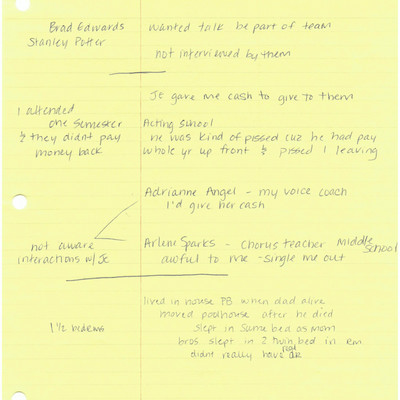 Brad Edwards wanted talk be part of team
Stanley Potter
not interviewed by them
JE gave me cash to give to them
I attended Acting school
one semester he was kind of pissed cuz he had pay
½ they didnt pay whole yr up front ½ pissed I leaving
money back
Adrianne Angel - my voice coach
I'd give her cash
not aware Arlene Sparks - chorus teacher Middle School
interactions w/ JE awful to me - single me out
lived in house PB when dad alive
moved poolhouse after he died
slept in same bed as mom
1 ½ bedrms bros slept in 2 twin bed in rm
didnt really have